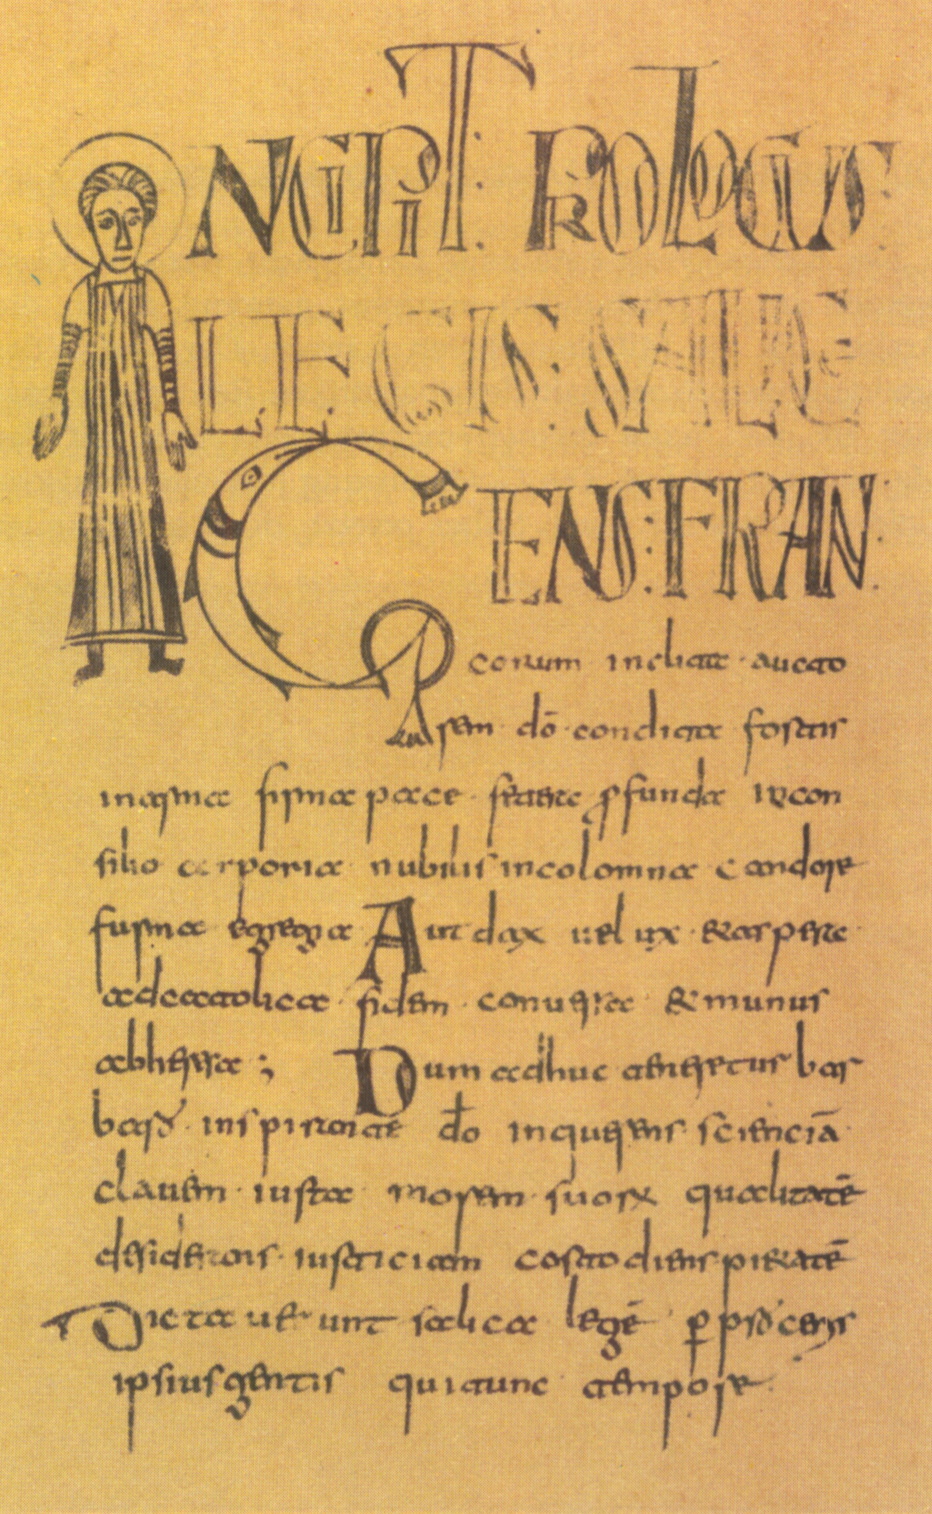 INCIPIT PROLOGUS
LEGIS SALICE
GENS FRAN
corum inclita aucto
rem dō condita fortis
in arma firma pace fetere profunda in con
silio corporia nobilis incolomna candore
forma egregia Autdax velux et aspera
ad catolica fidem conversa et munus
ab herisa ; Dum adhuc teneretur bar
bara inspirante dō inquerens scienciā
clavem iusta morem suorum qualitatē
desiderans iusticiam costodiens pietatē
Dictaverunt salica legē per proceris
ipsius gentis qui tunc tempore